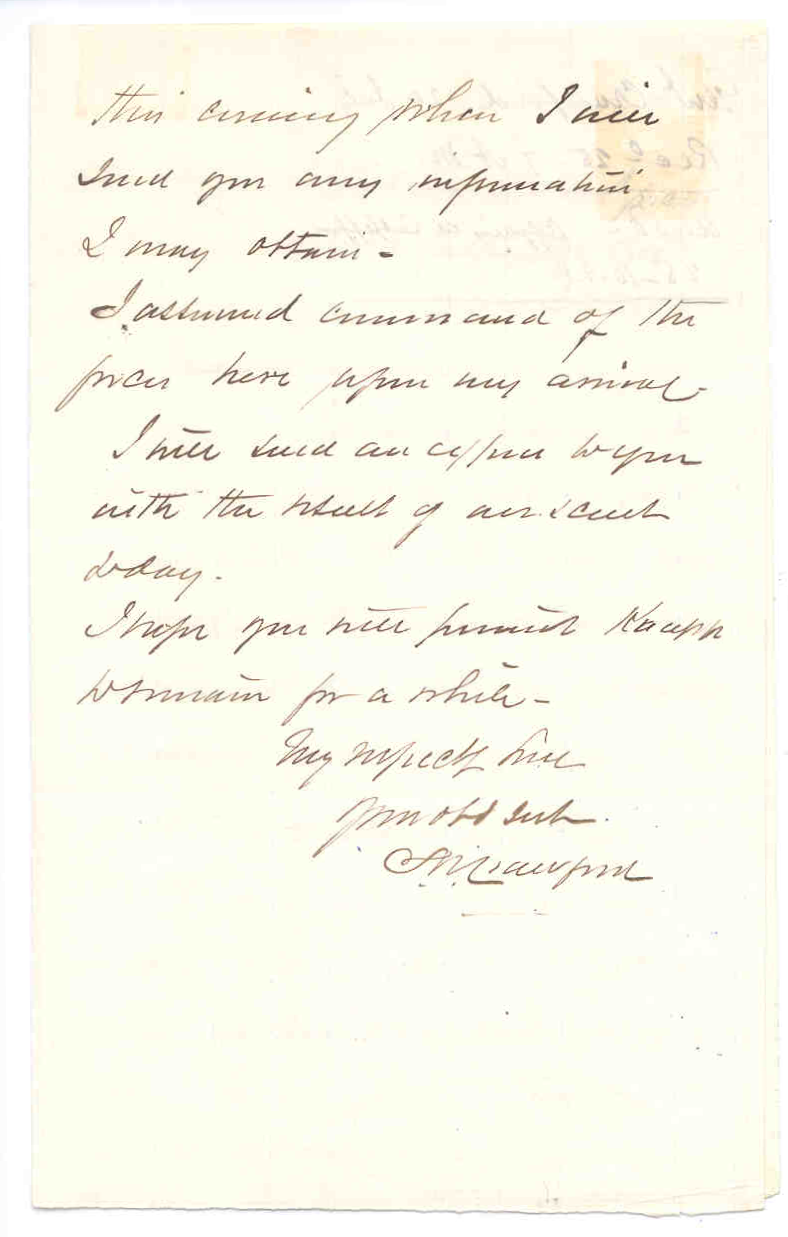 this evening when I will
send you any information
I may obtain -
I assumed command of the
forces here upon my arrival -
I will send an officer to you
with the result of our scout
today.
I hope you will permit Knapp
to remain for a while -
Very respectf
your obd Svt
S.W. Crawford